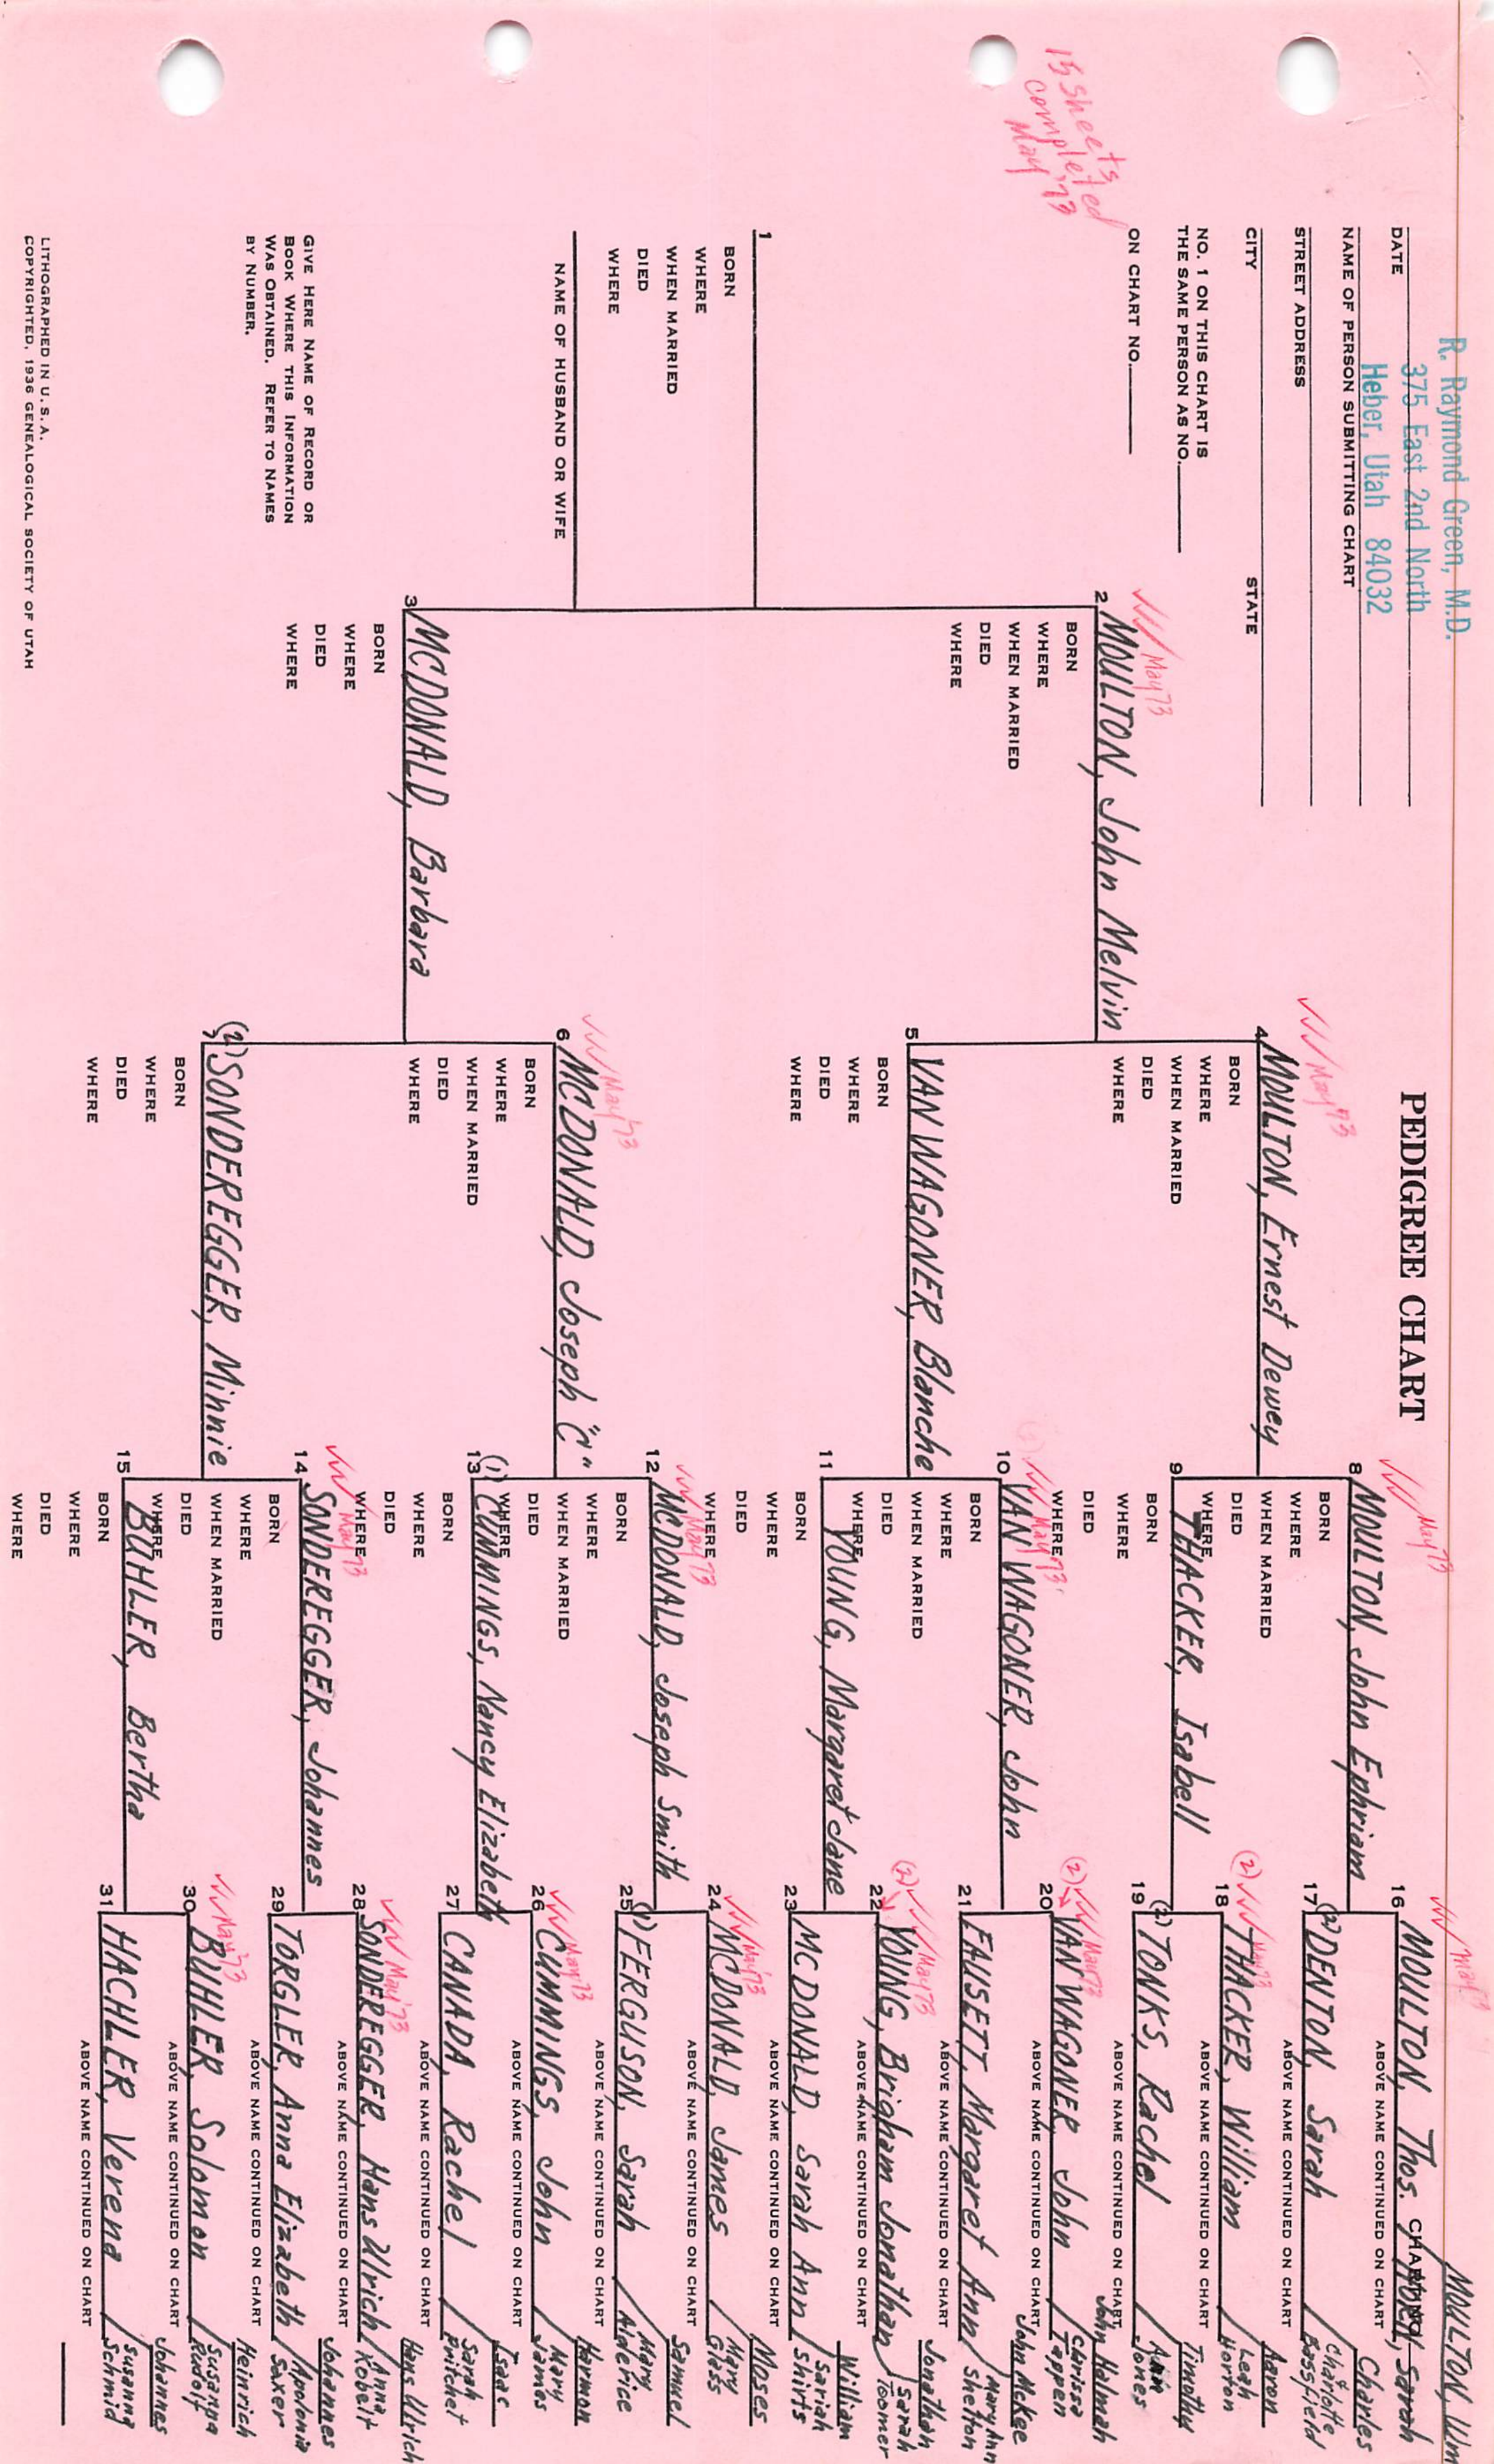 R. Raymond Green, M.D.
375 East 2nd North
Heber, Utah 84032
DATE
NAME OF PERSON SUBMITTING CHART
STREET ADDRESS
CITY STATE
NO. 1 ON THIS CHART IS
THE SAME PERSON AS NO.
ON CHART NO.
15 sheets
completed
May '73
PEDIGREE CHART
CHART NO.
MOULTON, Wm
1
BORN
WHERE
WHEN MARRIED
DIED
WHERE
NAME OF HUSBAND OR WIFE
May 73
2 MOULTON, John Melvin
BORN
WHERE
WHEN MARRIED
DIED
WHERE
3 MCDONALD, Barbara
BORN
WHERE
DIED
WHERE
May '73
4 MOULTON, Ernest Dewey
BORN
WHERE
WHEN MARRIED
DIED
WHERE
5 VAN WAGONER, Blanche
BORN
WHERE
DIED
WHERE
May '73
6 MCDONALD, Joseph "C"
BORN
WHERE
WHEN MARRIED
DIED
WHERE
7 (2) SONDEREGGER, Minnie
BORN
WHERE
DIED
WHERE
May 73
8 MOULTON, John Ephriam
BORN
WHERE
WHEN MARRIED
DIED
WHERE
9 THACKER, Isabell
BORN
WHERE
DIED
WHERE
May '73
10 VAN WAGONER, John
BORN
WHERE
WHEN MARRIED
DIED
WHERE
11 YOUNG, Margaret Jane
BORN
WHERE
DIED
WHERE
May '73
12 MCDONALD, Joseph Smith
BORN
WHERE
WHEN MARRIED
DIED
WHERE
13 (1) CUMMINGS, Nancy Elizabeth
BORN
WHERE
DIED
WHERE
May '73
14 SONDEREGGER, Johannes
BORN
WHERE
WHEN MARRIED
DIED
WHERE
15 BUHLER, Bertha
BORN
WHERE
DIED
WHERE
May
16 MOULTON, Thos. Sarah
ABOVE NAME CONTINUED ON CHART
17 (2) DENTON, Sarah / Charles & Charlotte Bassfield
ABOVE NAME CONTINUED ON CHART
(2) May 73
18 THACKER, William / Aaron Leah Horton
ABOVE NAME CONTINUED ON CHART
19 (2) TONKS, Rachel / Timothy Ann Jones
ABOVE NAME CONTINUED ON CHART
(2) May 73
20 VAN WAGONER, John / John Halmah Clarissa Tappen
ABOVE NAME CONTINUED ON CHART
21 FAUSETT, Margaret Ann / John McKee Mary Ann Shelton
ABOVE NAME CONTINUED ON CHART
(2) May 73
22 YOUNG, Brigham Jonathan / Jonathan Sarah Toomer
ABOVE NAME CONTINUED ON CHART
23 MCDONALD, Sarah Ann / William Sariah Shirts
ABOVE NAME CONTINUED ON CHART
May '73
24 MCDONALD, James / Moses Mary Glass
ABOVE NAME CONTINUED ON CHART
25 (1) FERGUSON, Sarah / Samuel Mary Alderice
ABOVE NAME CONTINUED ON CHART
May 73
26 CUMMINGS, John / Harmon Mary James
ABOVE NAME CONTINUED ON CHART
27 CANADA, Rachel / Isaac Sarah Pritchet
ABOVE NAME CONTINUED ON CHART
May '73
28 SONDEREGGER, Hans Ulrich / Hans Ulrich Anna Kobelt
ABOVE NAME CONTINUED ON CHART
29 TORGLER, Anna Elizabeth / Johannes Apolonia Saxer
ABOVE NAME CONTINUED ON CHART
May '73
30 BUHLER, Solomon / Heinrich Susanna Rudolf
ABOVE NAME CONTINUED ON CHART
31 HACHLER, Verena / Johannes Susanna Schmid
ABOVE NAME CONTINUED ON CHART
GIVE HERE NAME OF RECORD OR
BOOK WHERE THIS INFORMATION
WAS OBTAINED. REFER TO NAMES
BY NUMBER.
LITHOGRAPHED IN U.S.A.
COPYRIGHTED, 1936 GENEALOGICAL SOCIETY OF UTAH